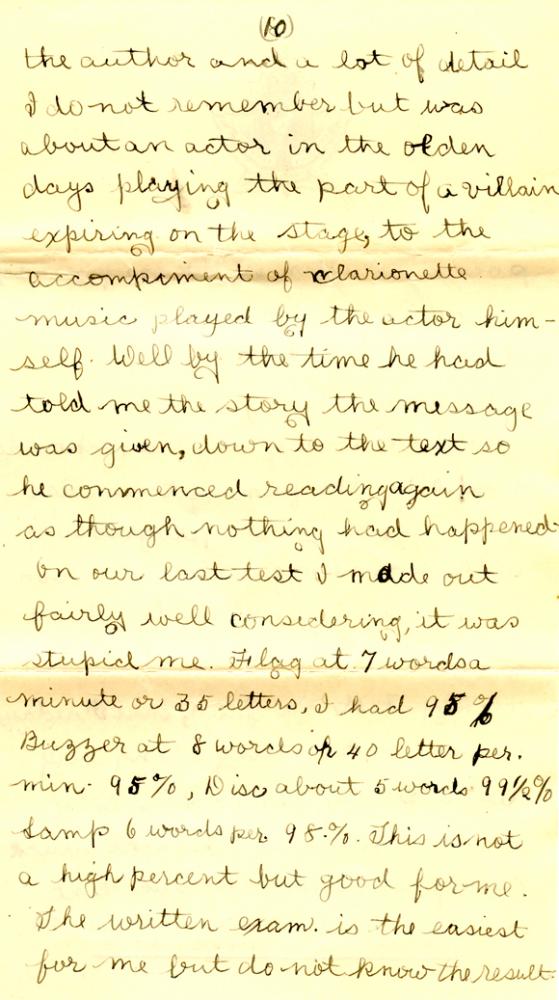 (10)
the author and a lot of detail
I do not remember but was
about an actor in the olden
days playing the part of a villain
expiring on the stage, to the
accompiment of clarionette
music played by the actor him-
self. Well by the time he had
told me the story the message
was given, down to the text so
he commenced reading again
as though nothing had happened.
On our last test I made out
fairly well considering, it was
stupid me. Flag at 7 words a
minute or 35 letters, I had 95%
Buzzer at 8 words or 40 letter per.
min. 95%, Disc about 5 words 99½%
Lamp 6 words per. 98.%. This is not
a high percent but good for me.
The written exam. is the easiest
for me but do not know the result.